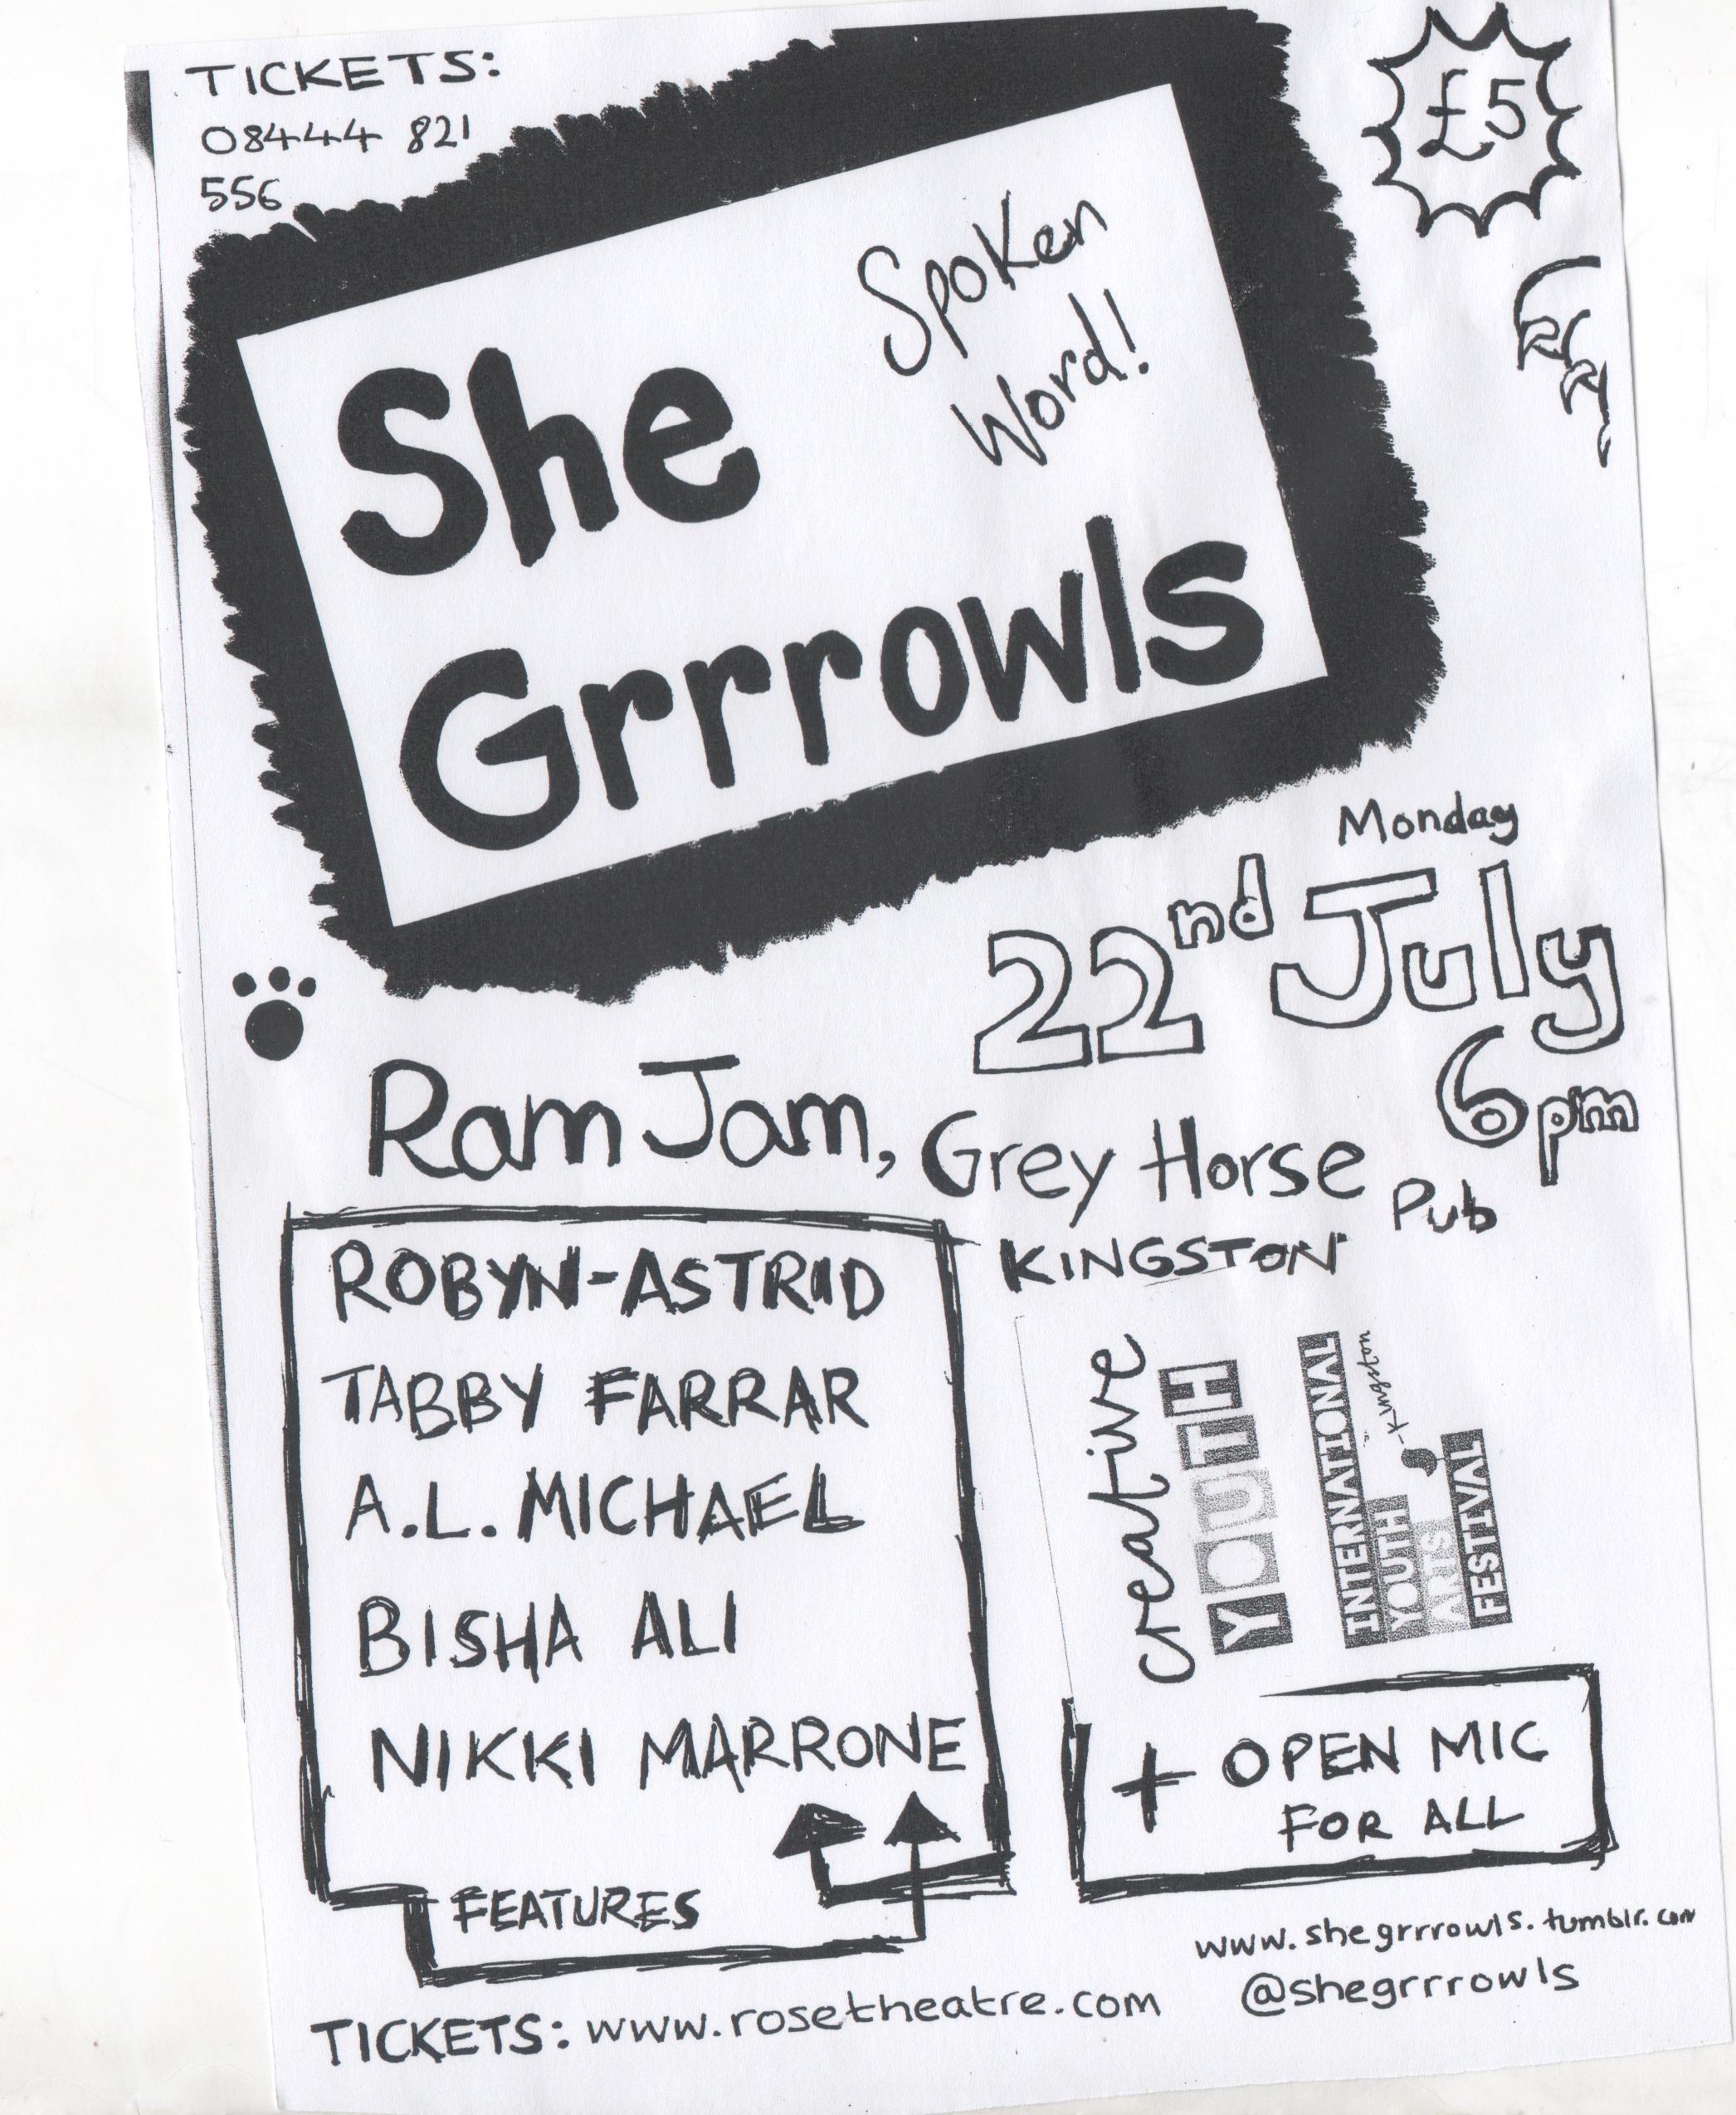 TICKETS:
08444 821
556
£5
Spoken
Word!
She
Grrrowls
Monday
22nd July
6pm
Ram Jam, Grey Horse
Pub
KINGSTON
ROBYN-ASTRID
TABBY FARRAR
A.L. MICHAEL
BISHA ALI
NIKKI MARRONE
FEATURES
creative
YOUTH
INTERNATIONAL
YOUTH
ARTS
FESTIVAL
Kingston
+ OPEN MIC
FOR ALL
www.shegrrrowls.tumblr.com
@shegrrrowls
TICKETS: www.rosetheatre.com